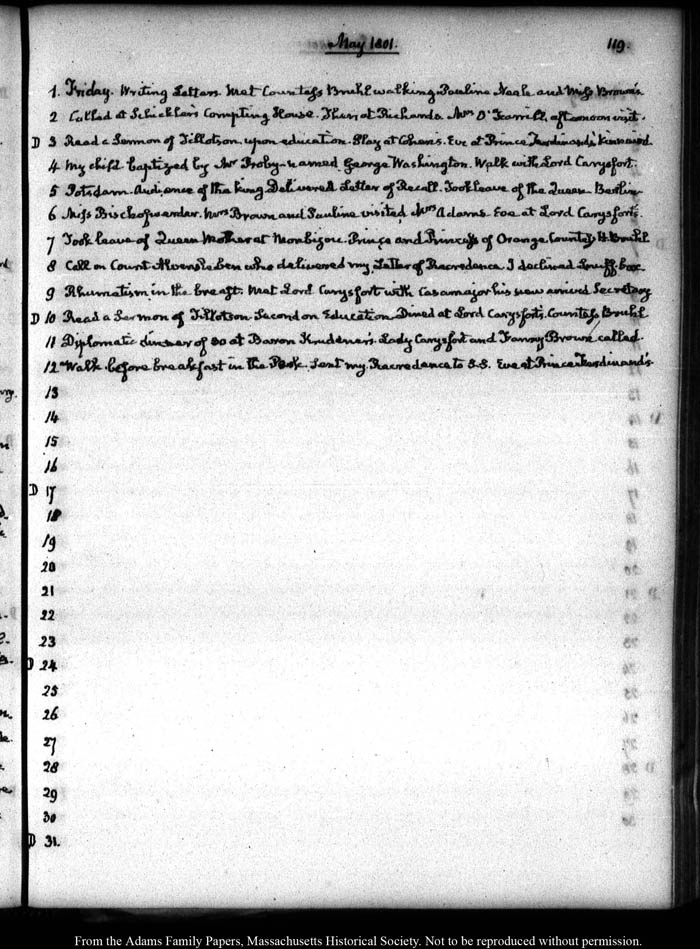 May 1801. 119.
1. Friday. Writing Letters. Met Countess Bruhl walking. Pauline Neale and Miss Brown's
2 Called at Schickler's Compting House. Then at Richards. Mrs O'Farrill, afternoon visit.
D 3 Read a Sermon of Tillotson, upon education. Play at Cohen's. Eve at Prince Ferdinand's, Kinnaird
4 My child baptized by Mr Proby named George Washington. Walk with Lord Carysfort.
5 Potsdam. Audience of the King Delivered Letter of Recall. Took leave of the Queen Berlin
6 Miss Bischofswerder. Mrs Brown and Pauline visited Mrs Adams Eve at Lord Carysfort's.
7 Took leave of Queen Mother at Monbijou. Prince and Princess of Orange Countess Bruhl
8 Call on Count Alvensleben who delivered my Letter of Recredence. I declined Snuff box
9 Rhumatism in the breast. Met Lord Carysfort with Casamajor his new arrived Secretary
D 10 Read a Sermon of Tillotson Second on Education. Dined at Lord Carysfort's. Countess Bruhl
11 Diplomatic dinner of 30 at Baron Krudener's. Lady Carysfort and Fanny Brown called.
12 Walk before breakfast in the Park. Sent my Recredence to S.S. Eve at Prince Ferdinand's
13
14
15
16
D 17
18
19
20
21
22
23
D 24
25
26
27
28
29
30
D 31.
From the Adams Family Papers, Massachusetts Historical Society. Not to be reproduced without permission.